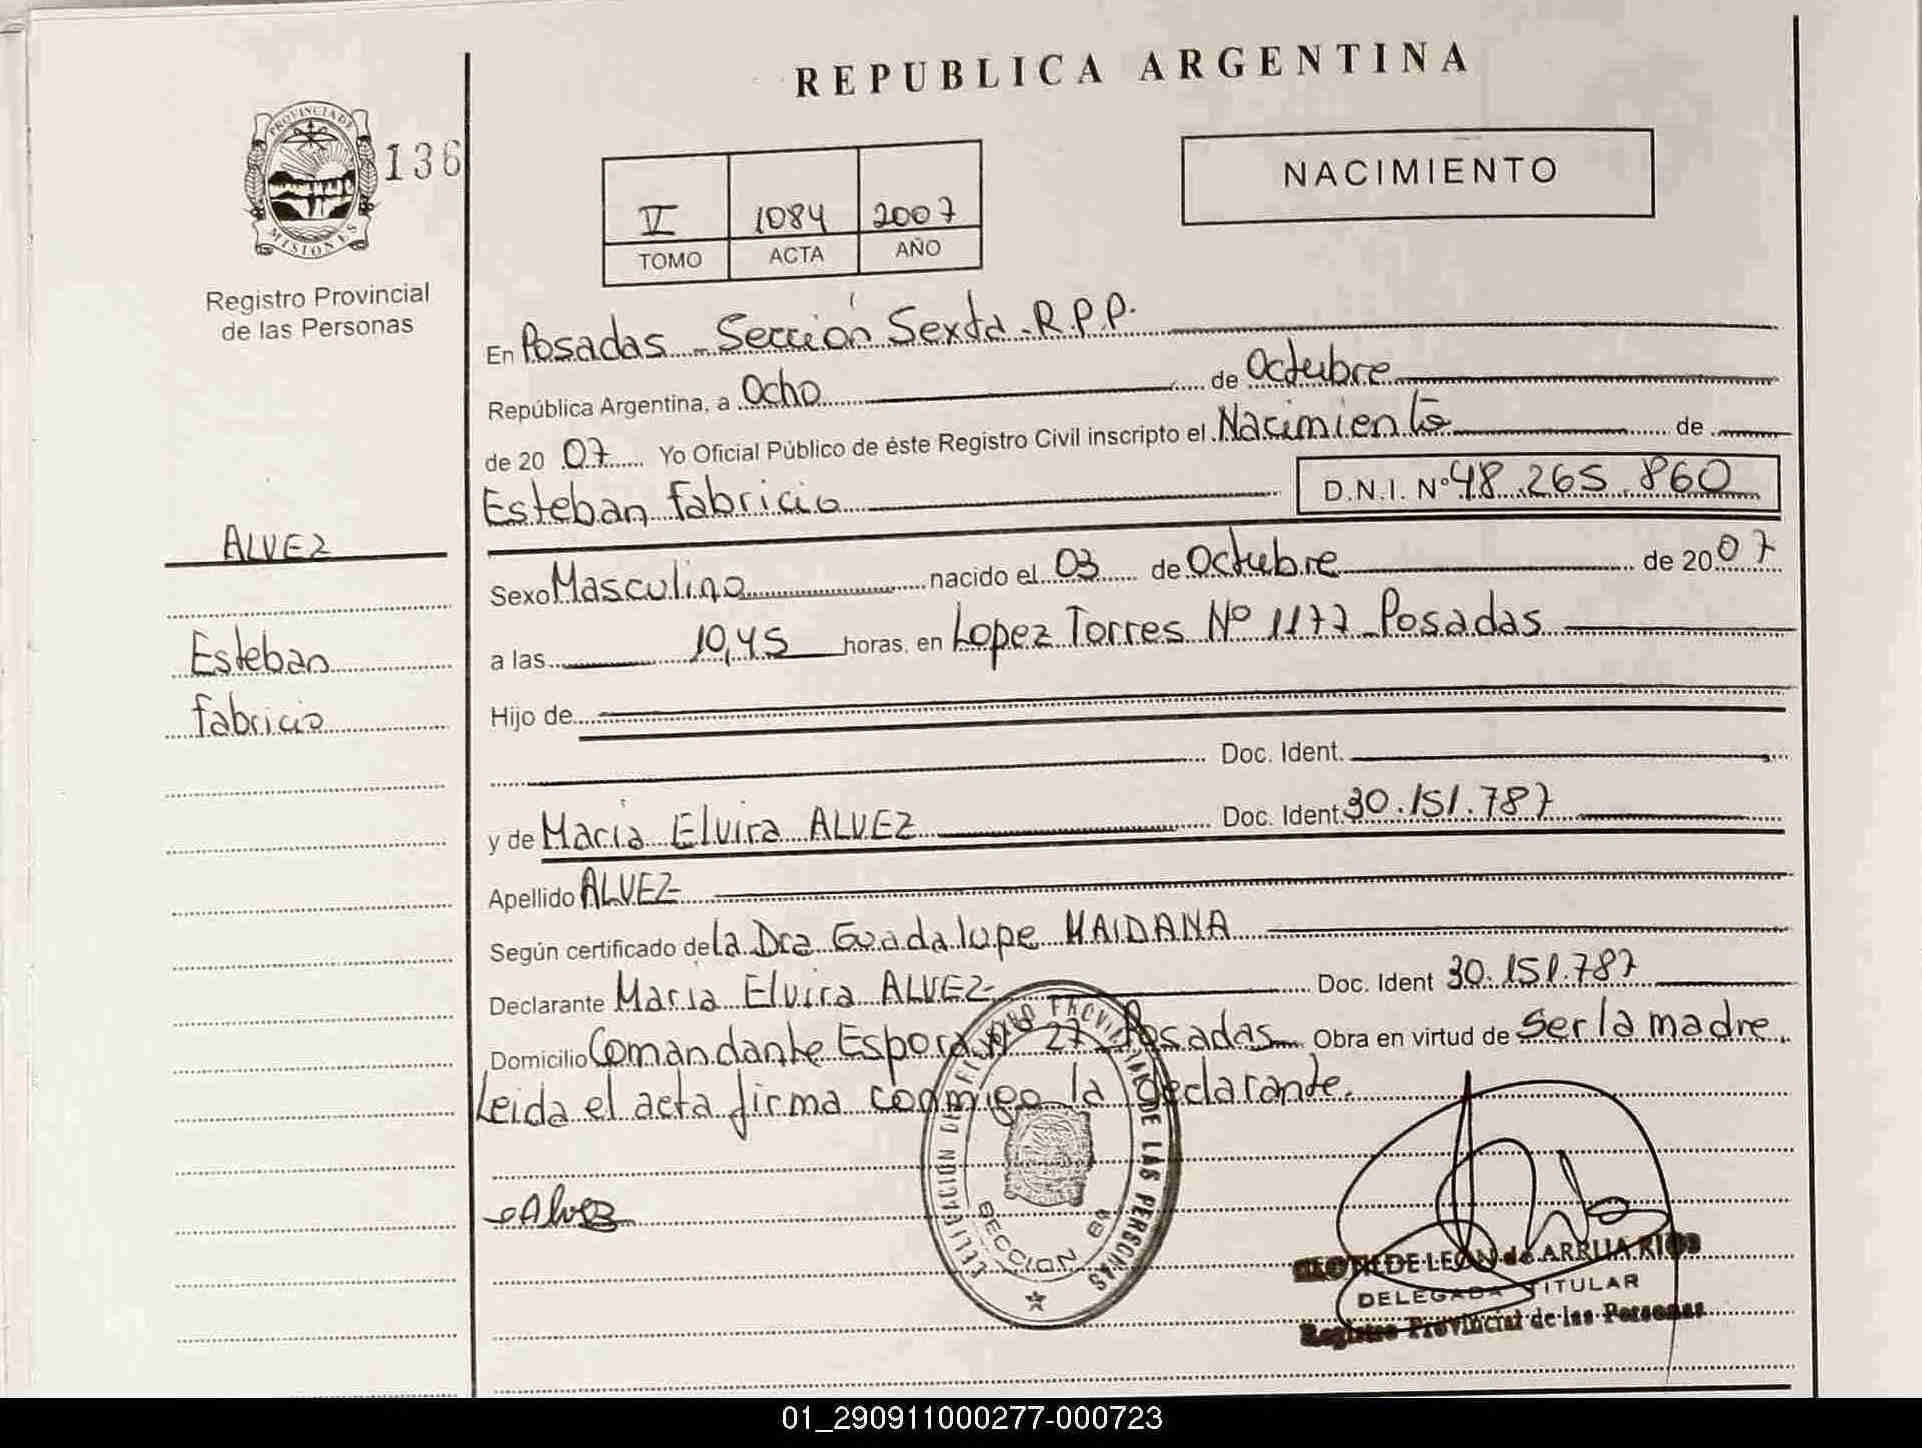 REPUBLICA ARGENTINA
PROVINCIA DE
MISIONES
136
Registro Provincial
de las Personas
V 1084 2007
TOMO ACTA AÑO
NACIMIENTO
En Posadas - Sección Sexta - R.P.P.
República Argentina, a Ocho de Octubre
de 20 07 Yo Oficial Público de éste Registro Civil inscripto el Nacimiento de
Esteban Fabricio D.N.I. Nº 48.265.860
ALVEZ
Esteban
Fabricio
Sexo Masculino nacido el 03 de Octubre de 20 07
a las 10,45 horas, en Lopez Torres Nº 1177 Posadas
Hijo de
Doc. Ident.
y de Maria Elvira ALVEZ Doc. Ident. 30.151.787
Apellido ALVEZ
Según certificado de la Dra Guadalupe MAIDANA
Declarante Maria Elvira ALVEZ Doc. Ident 30.151.787
Domicilio Comandante Espora Nº 27 Posadas Obra en virtud de Ser la madre.
Leida el acta firma conmigo la declarante.
Alvez
DELEGACION DEL REGISTRO PROVINCIAL DE LAS PERSONAS
SECCION 6a
CLOTILDE LEON de ARRUA RIOS
DELEGADA TITULAR
Registro Provincial de las Personas
01_290911000277-000723